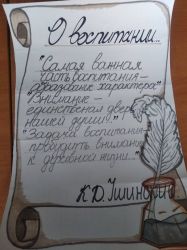 О воспитании...
"Самая важная
часть воспитания –
образование характера"
"Внимание –
единственная дверь
нашей души!.."
"Задача воспитания –
пробудить внимание
к духовной жизни..."
К.Д. Ушинский